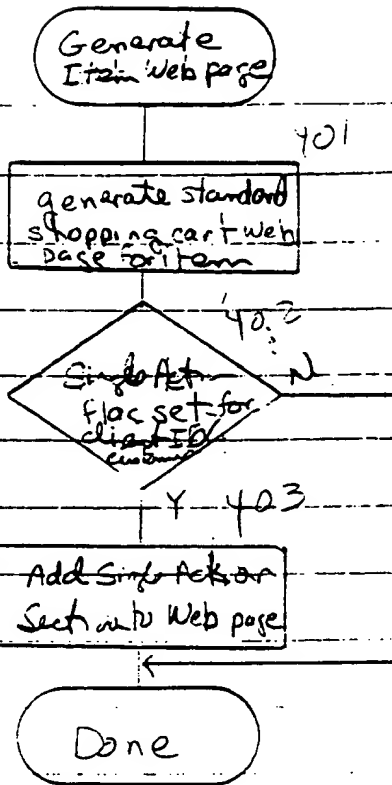 Generate
Item Web page
401
generate standard
shopping cart web
page for item
402
Single Act
flag set for
client ID/
customer
N
Y 403
Add Single Action
Section to Web page
Done